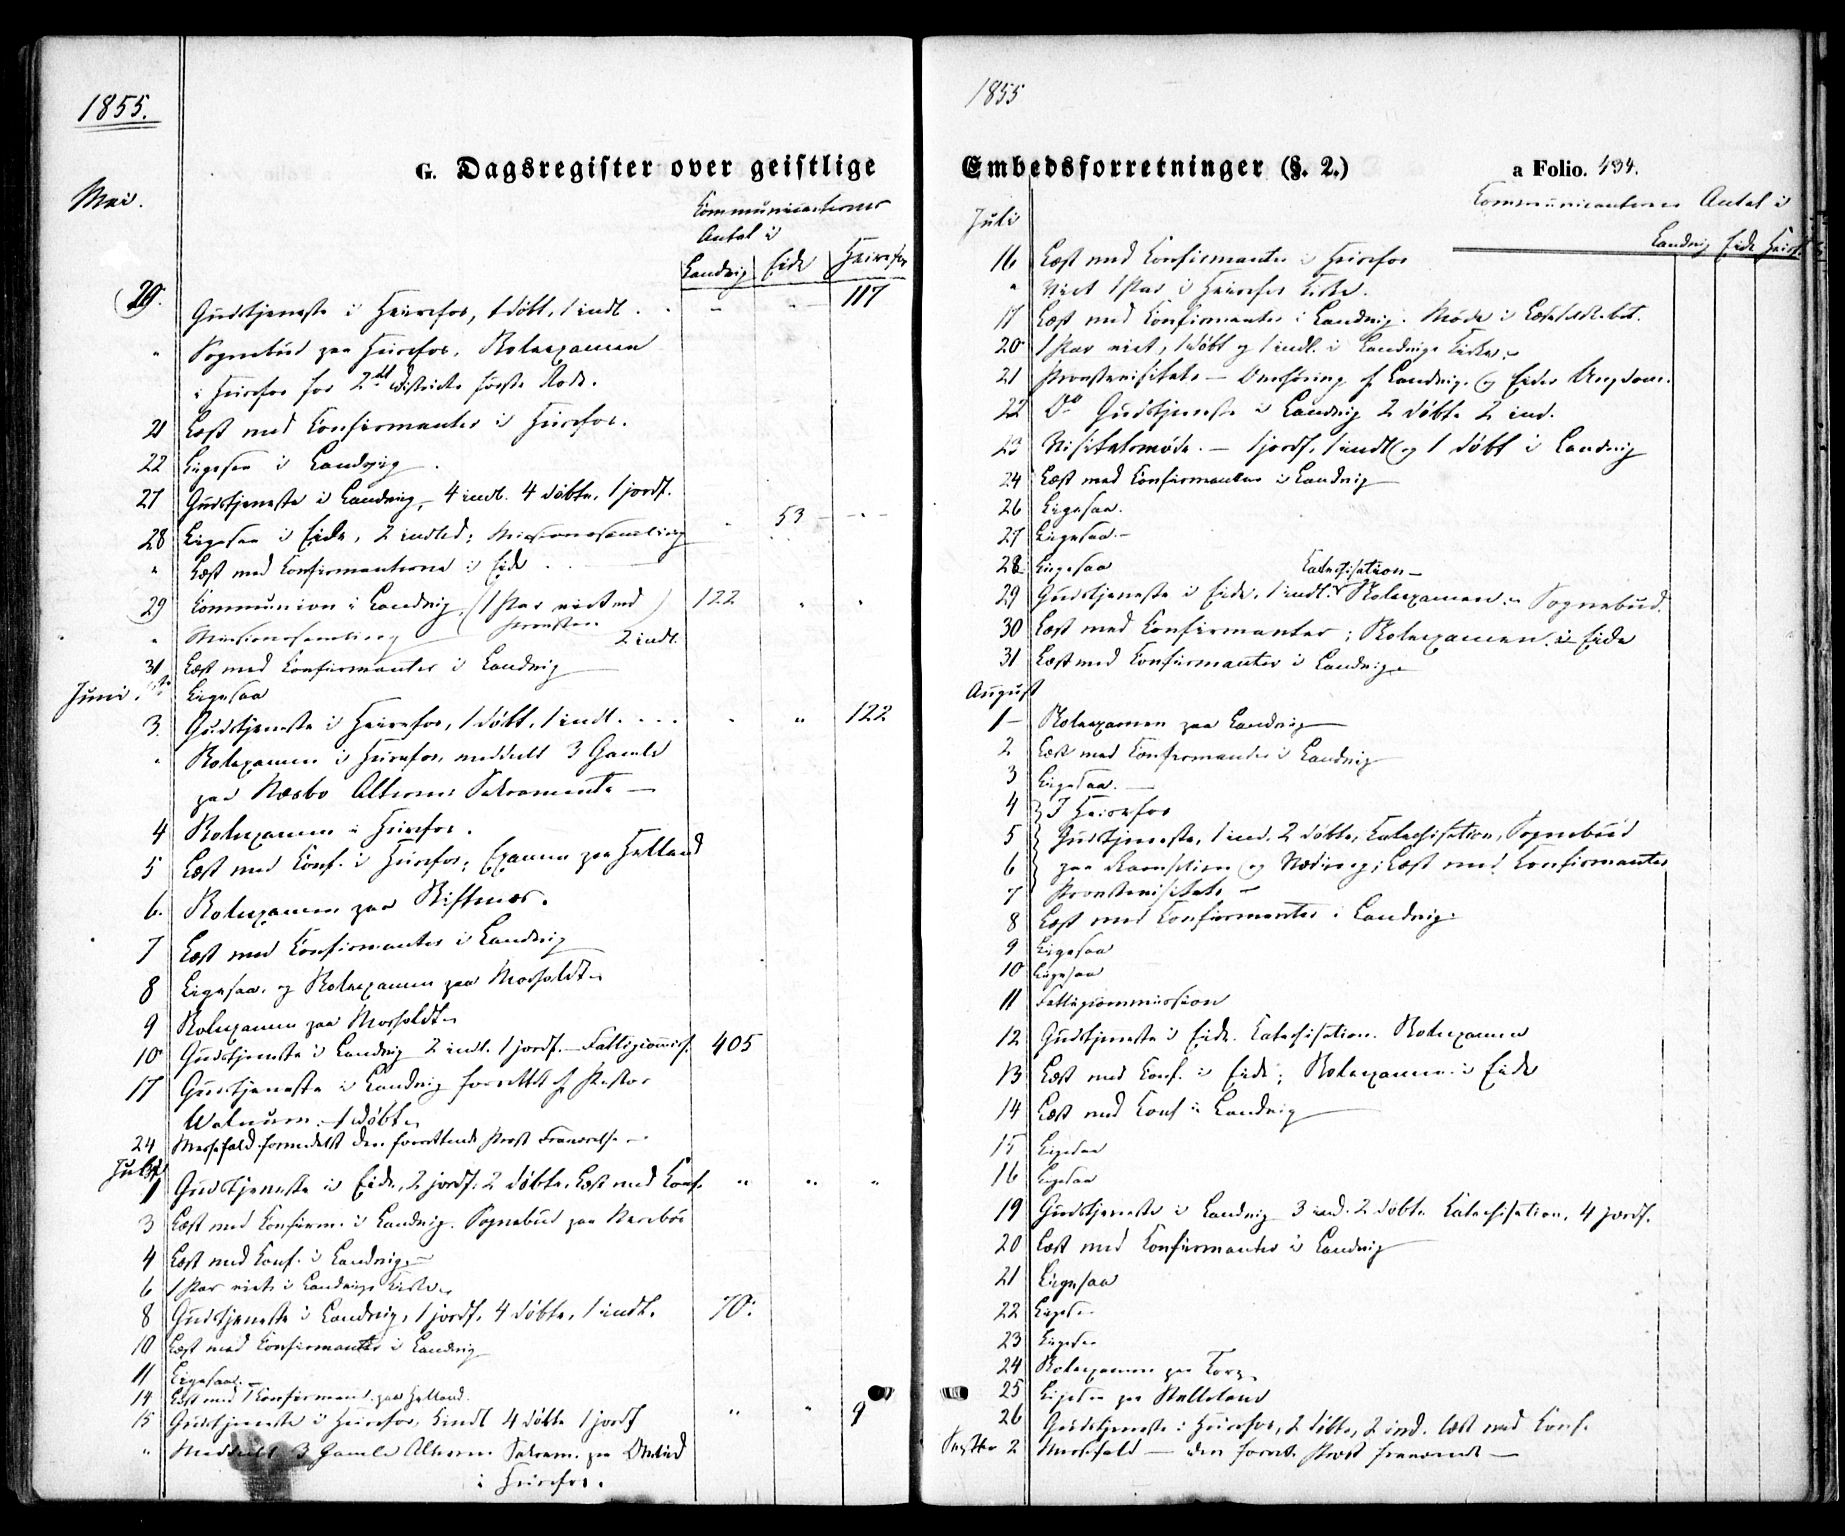 1855.
G. Dagsregister over geistlige
Mai.
Communicanternes
Antal i
Landvig Eide Heirefos
20. Gudstjeneste i Heirefos, 1 døbt, 1 indl. . . „ „ 117
„ Sognebud paa Heirefos. Roleexamen
i Heirefos for 2det Districts første Rode.
21 Læst med Confirmanter i Heirefos.
22 Ligesaa i Landvig.
27 Gudstjeneste i Landvig, 4 indl. 4 døbte, 1 jordf.
28 Ligesaa i Eide, 2 indled; Missionssamling „ 53 „
„ Læst med Confirmanterne i Eide . . .
29 Communion i Landvig, (1 Par viet ved 122 „ „
„ Missionssamling Provsten) 2 indl.
31 Læst med Confirmanter i Landvig
Juni 1ste Ligesaa
3. Gudstjeneste i Heirefos, 1 døbt, 1 indl. . . . „ „ 122
„ Roleexamen i Heirefos, meddelt 3 Gamle
paa Næsbo Alterens Sakramente —
4 Roleexamen i Heirefos.
5 Læst med Conf. i Heirefos; Examen paa Helland
6. Roleexamen paa
7 Læst med Confirmanter i Landvig
8 Ligesaa, og Roleexamen paa Morholdt
9 Roleexamen paa Morholdt
10 Gudstjeneste i Landvig 2 indl. 1 jordf. — Fattigcomiss. 405
17 Gudstjeneste i Landvig forrettet af Pastor
Walnum. 1 døbt
24 Messefald formedelst den forrettende Præst Fraværelse —
Juli
1 Gudstjeneste i Eide, 2 jordf. 2 døbte, Læst med Conf. „ „ „
3 Læst med Confirm. i Landvig. Sognebud paa
4 Læst med Conf. i Landvig —
6 1 Par viet i Landvigs Kirke
8 Gudstjeneste i Landvig, 1 jordf. 4 døbte, 1 indl. 70.
10 Læst med Confirmanter i Landvig
11 Ligesaa.
14 Læst med 1 Confirmant paa Helland.
15 Gudstjeneste i Heirefos, indl 4 døbte 1 jordf „ „ 9
„ Meddeelt 3 Gamle Alterens Sakram. paa
i Heirefos.
1855
Embedsforretninger (§. 2.)
a Folio. 434.
Juli
Communicanternes Antal i
Landvig Eide Heiref.
16 Læst med Confirmanter i Heirefos
„ Viet 1 Par i Heirefos Kirke.
17 Læst med Confirmanter i Landvig. Møde i
20 1 Par viet, 1 døbt og 1 indl. i Landvigs Kirke.
21 Provstevisitats — Overhøring af Landvigs og Eides Ungdom.
22 Do Gudstjeneste i Landvig 2 døbte 2 ind.
23 Visitatsmøde. — 1 jordf. 1 indl og 1 døbt i Landvig
24 Læst med Confirmanter i Landvig
26 Ligesaa.
27 Ligesaa. —
28 Ligesaa
Catechisation —
29 Gudstjeneste i Eide, 1 indl. Roleexamen. — Sognebud.
30 Læst med Confirmanter; Roleexamen i Eide
31 Læst med Confirmanter i Landvig
August
1 — Roleexamen paa Landvig
2 Læst med Confirmanter i Landvig
3 Ligesaa. —
4 I Heirefos
5 Gudstjeneste, 1 ind. 2 døbte, Catechisation, Sognebud
6 paa og ; Læst med Confirmanter
7 Provstevisitats —
8 Læst med Confirmanter i Landvig.
9 Ligesaa
10 Ligesaa
11 Fattigcommission
12 Gudstjeneste i Eide. Catechisation. Roleexamen
13 Læst med Conf. i Eide; Roleexamen i Eide
14 Læst med Conf i Landvig
15 Ligesaa
16 Ligesaa
19 Gudstjeneste i Landvig 3 ind. 2 døbte Catechisation, 4 jordf.
20 Læst med Confirmanter i Landvig
21 Ligesaa
22 Ligesaa
23 Ligesaa
24 Roleexamen paa
25 Ligesaa paa
26 Gudstjeneste i Heirefos, 2 døbte, 2 ind. Læst med Conf.
Septbr 2 Messefald — den forret. Præst fraværende —